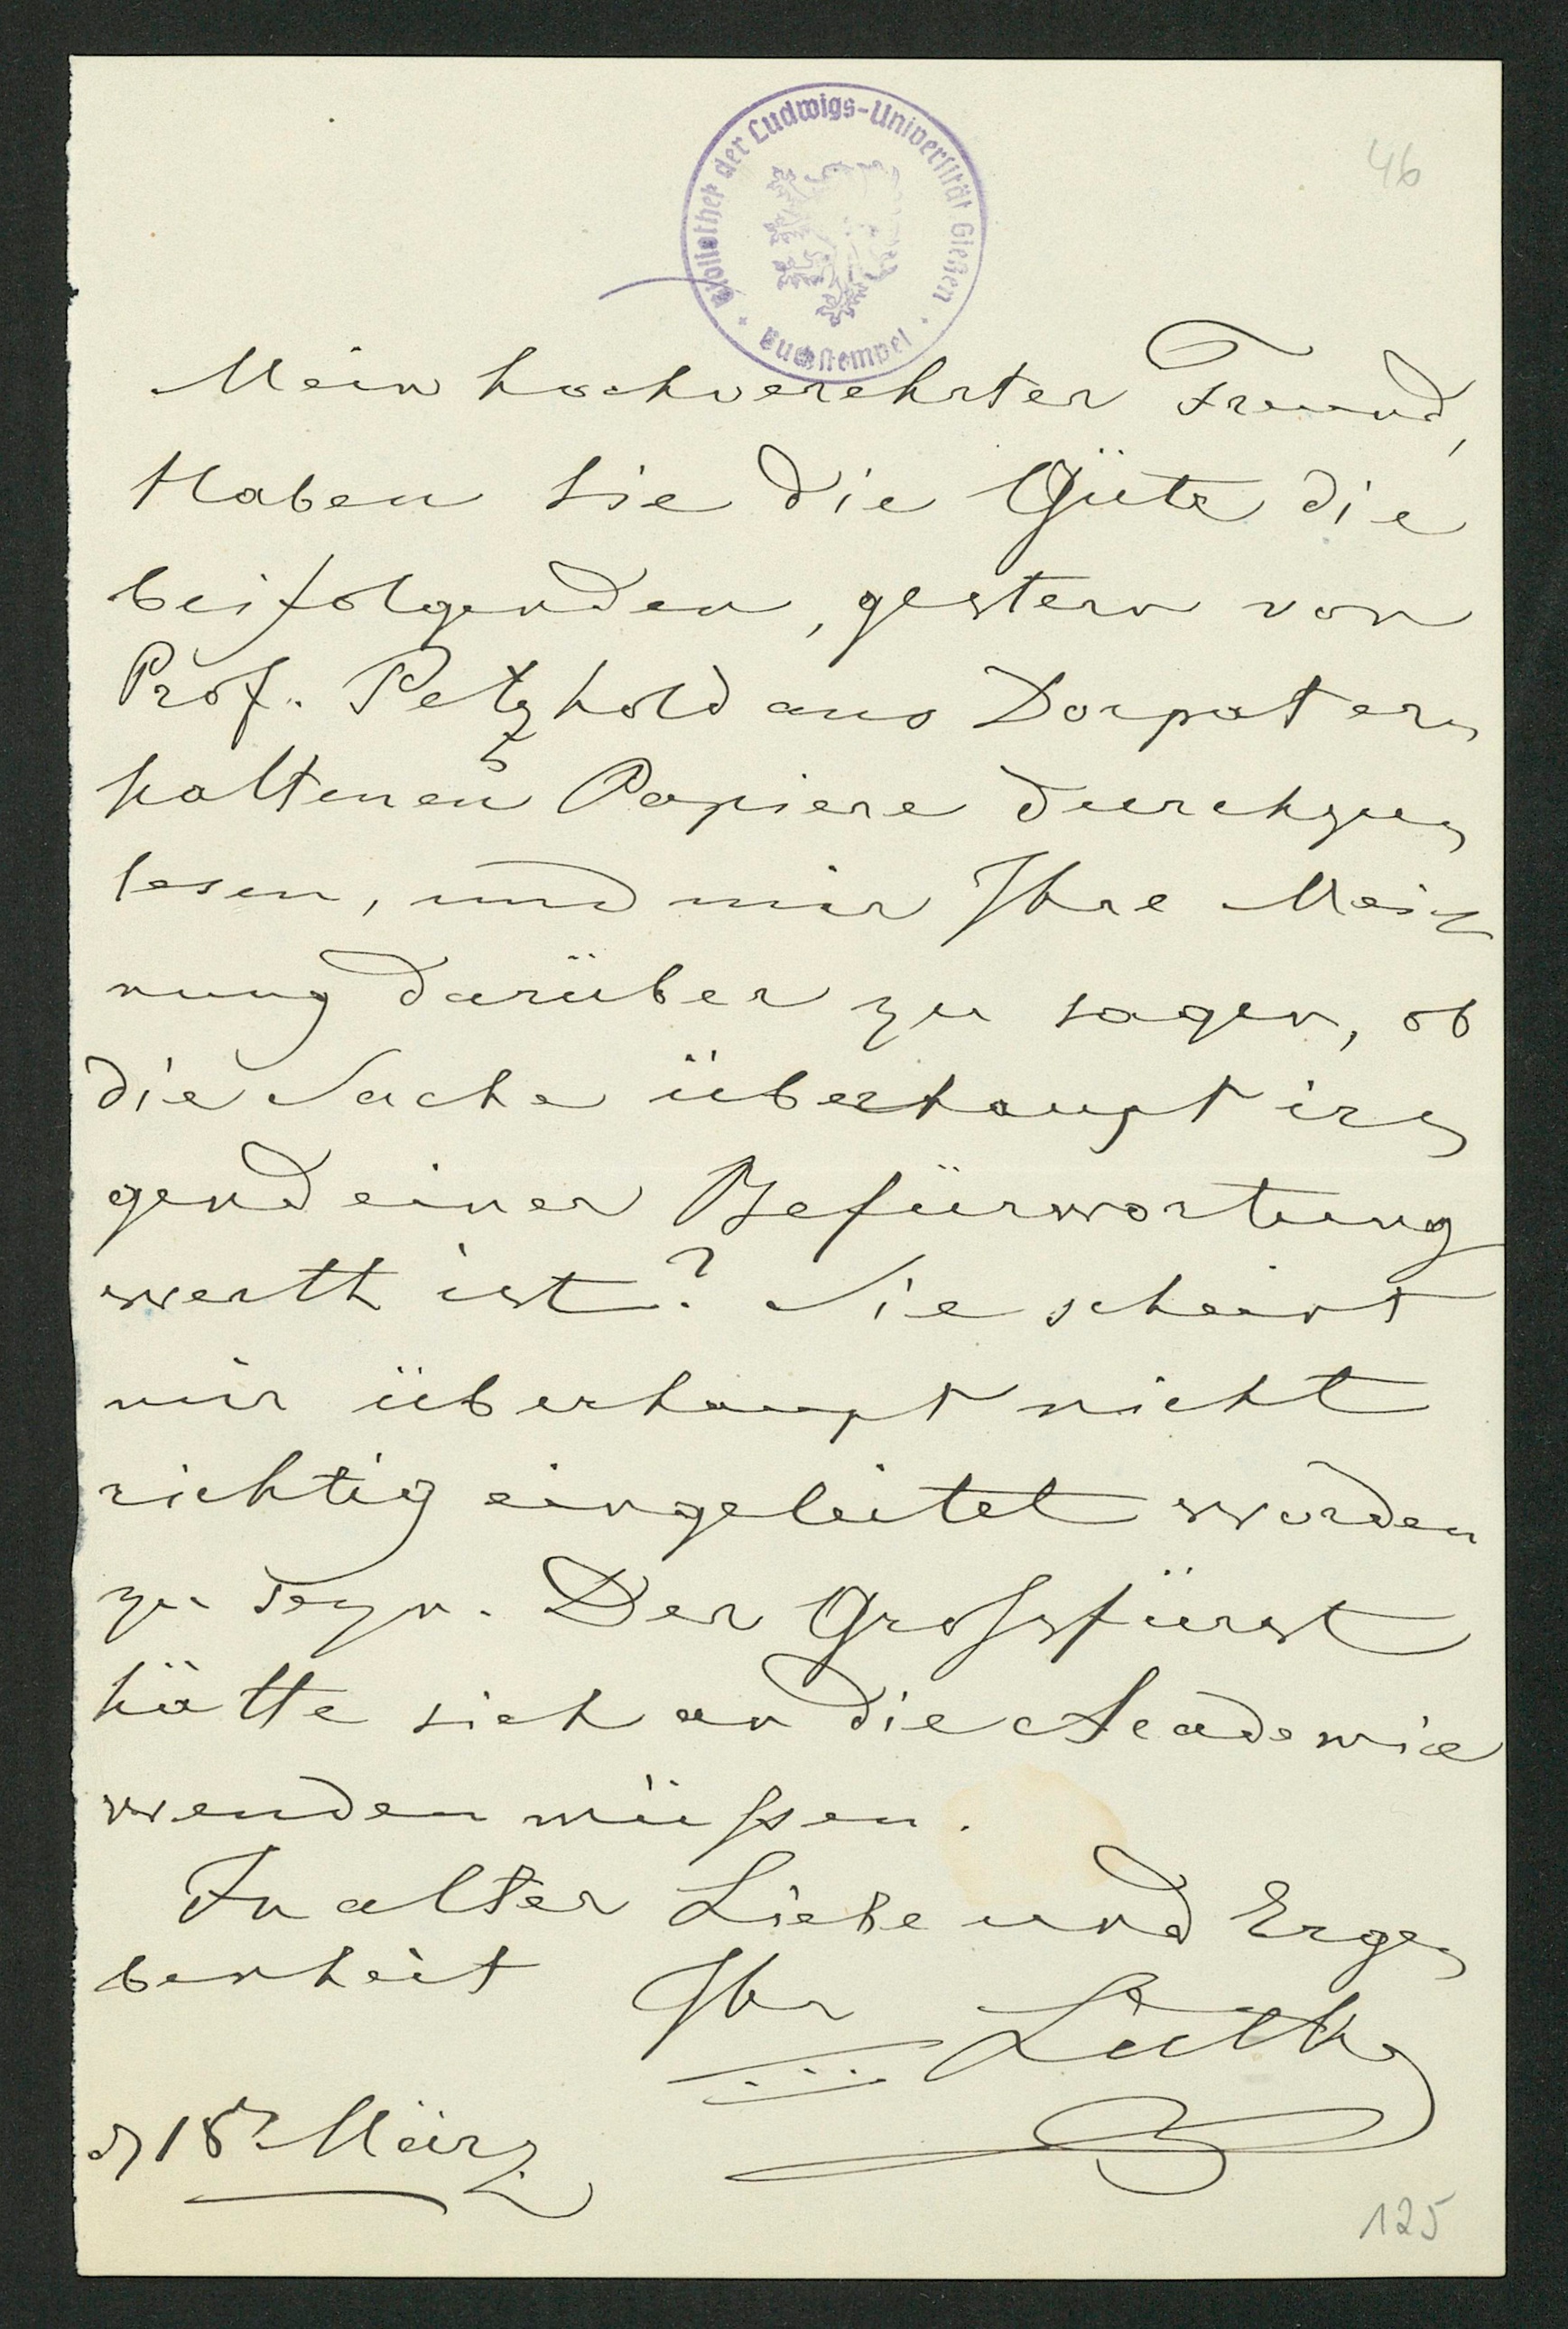 46
Bibliothek der Ludwigs-Universität Gießen
Buchstempel
Mein hochverehrter Freund,
Haben Sie die Güte die
beifolgenden, gestern von
Prof. Petzhold aus Dorpat er-
haltenen Papiere durchzu-
lesen, und mir Ihre Mei-
nung darüber zu sagen, ob
die Sache überhaupt ir-
gend einer Befürwortung
werth ist? Sie scheint
mir überhaupt nicht
richtig eingeleitet worden
zu seyn. Der Großfürst
hätte sich an die Academie
wenden müßen.
In alter Liebe und Erge-
benheit Ihr Lütke
d 18t März
125